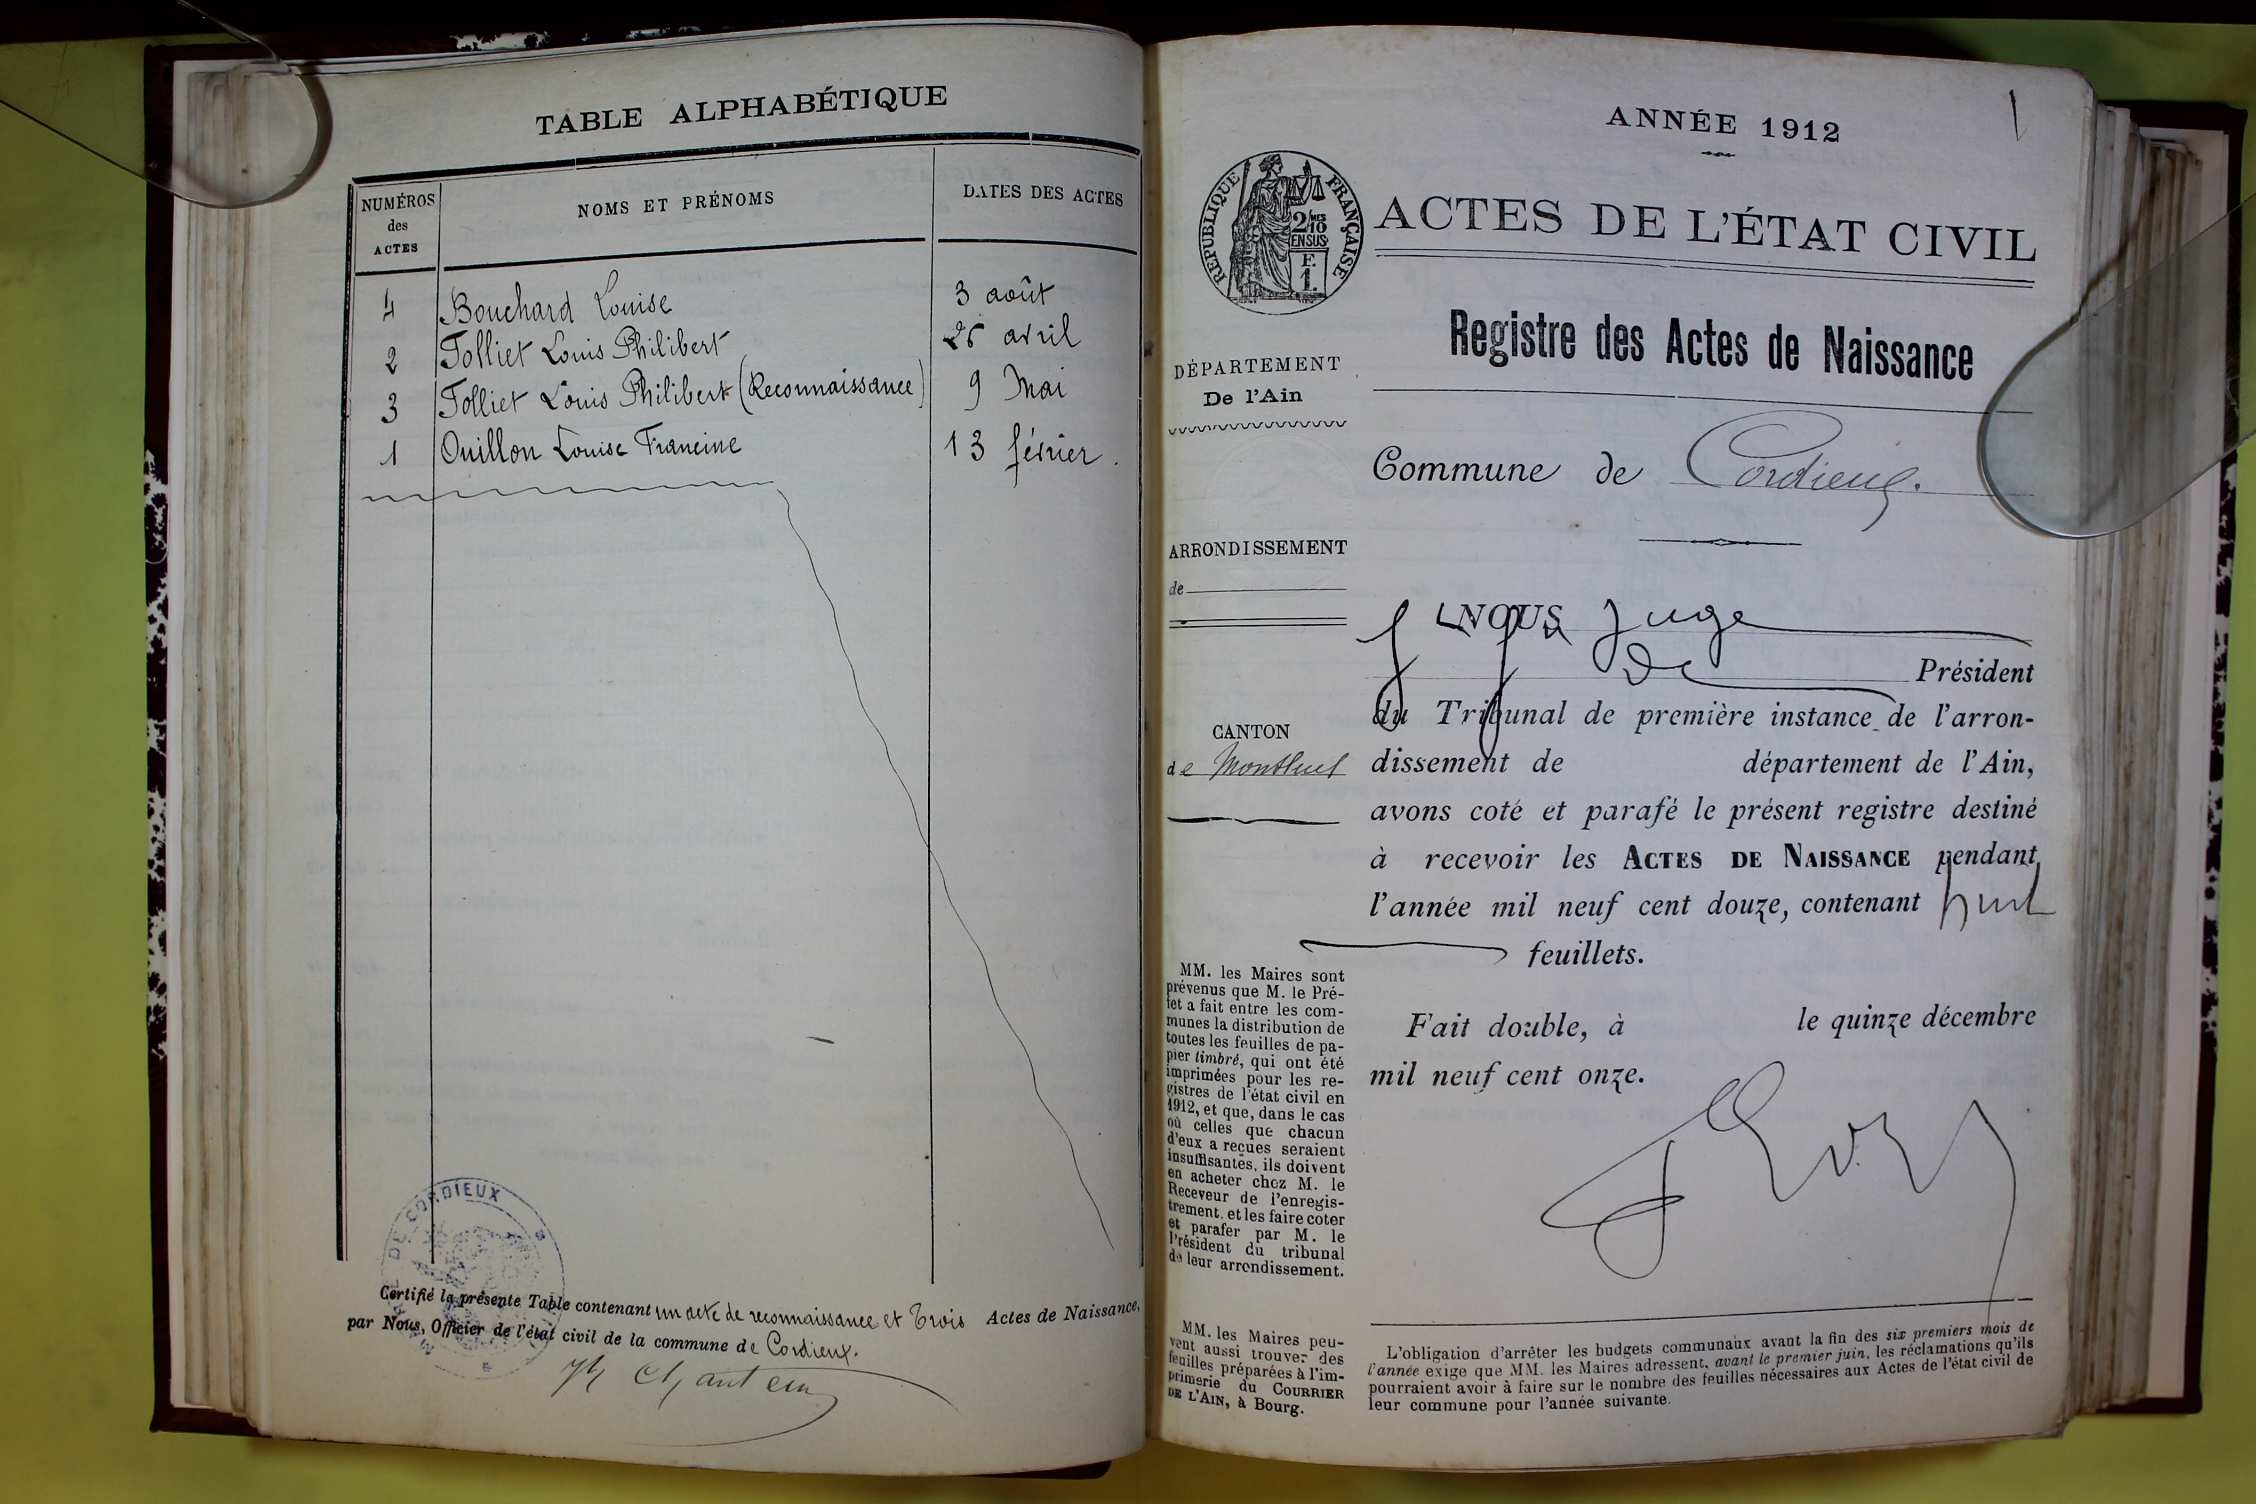 TABLE ALPHABÉTIQUE
NUMÉROS des ACTES
NOMS ET PRÉNOMS
DATES DES ACTES
4 Bouchard Louise 3 août
2 Tolliet Louis Philibert 25 avril
3 Tolliet Louis Philibert (Reconnaissance) 9 Mai
1 Ouillon Louise Francine 13 février.
DE CORDIEUX
Certifié la présente Table contenant un acte de reconnaissance et Trois Actes de Naissance,
par Nous, Officier de l'état civil de la commune de Cordieux.
1
ANNÉE 1912
RÉPUBLIQUE FRANÇAISE
2/10 EN SUS
F. 1.
ACTES DE L'ÉTAT CIVIL
Registre des Actes de Naissance
DÉPARTEMENT
De l'Ain
Commune de Cordieux.
ARRONDISSEMENT
de
CANTON
de Montluel
NOUS Juge
Président
du Tribunal de première instance de l'arron-
dissement de département de l'Ain,
avons coté et parafé le présent registre destiné
à recevoir les ACTES DE NAISSANCE pendant
l'année mil neuf cent douze, contenant huit
feuillets.
Fait double, à le quinze décembre
mil neuf cent onze.
MM. les Maires sont
prévenus que M. le Pré-
fet a fait entre les com-
munes la distribution de
toutes les feuilles de pa-
pier timbré, qui ont été
imprimées pour les re-
gistres de l'état civil en
1912, et que, dans le cas
où celles que chacun
d'eux a reçues seraient
insuffisantes, ils doivent
en acheter chez M. le
Receveur de l'enregis-
trement, et les faire coter
et parafer par M. le
Président du tribunal
de leur arrondissement.
MM. les Maires peu-
vent aussi trouver des
feuilles préparées à l'im-
primerie du COURRIER
DE L'AIN, à Bourg.
L'obligation d'arrêter les budgets communaux avant la fin des six premiers mois de
l'année exige que MM. les Maires adressent, avant le premier juin, les réclamations qu'ils
pourraient avoir à faire sur le nombre des feuilles nécessaires aux Actes de l'état civil de
leur commune pour l'année suivante.